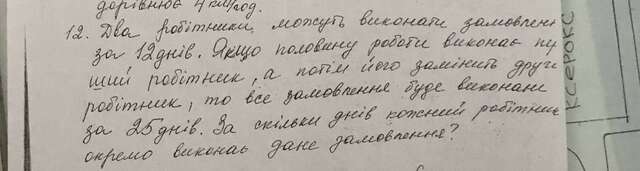 дорівнює 4 км/год.
12. Два робітники можуть виконати замовленн
за 12 днів. Якщо половину роботи виконає пе
ший робітник, а потім його замінить други
робітник, то все замовлення буде виконане
за 25 днів. За скільки днів кожний робітник
окремо виконає дане замовлення?
КСЕРОКС